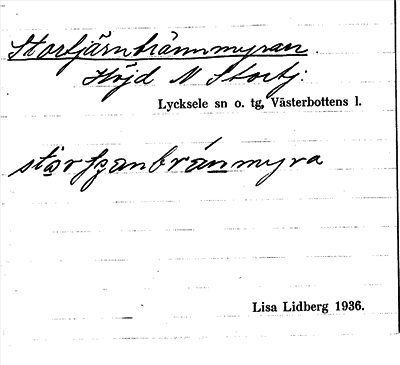 Stortjärnbrännmyran.
Höjd N Stortj:
Lycksele sn o. tg, Västerbottens l.
stơrʃʒanbránmyra
Lisa Lidberg 1936.